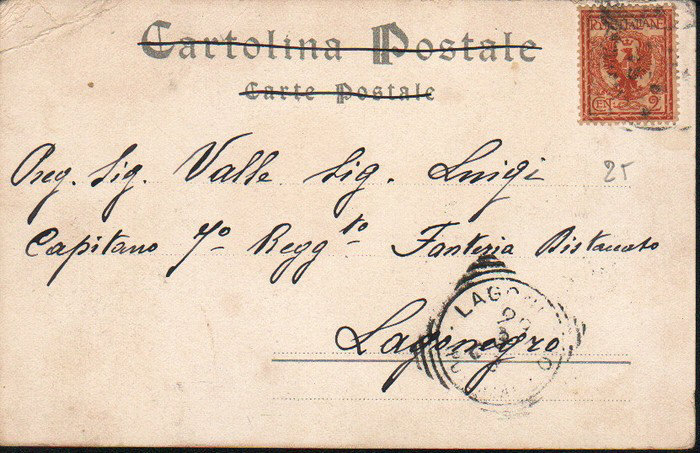 Cartolina Postale
Carte Postale
CEN. 2
25
Preg. Sig. Valle Sig. Luigi
Capitano 7º Regg.to Fanteria Distaccato
Lagonegro
LAGONEGRO